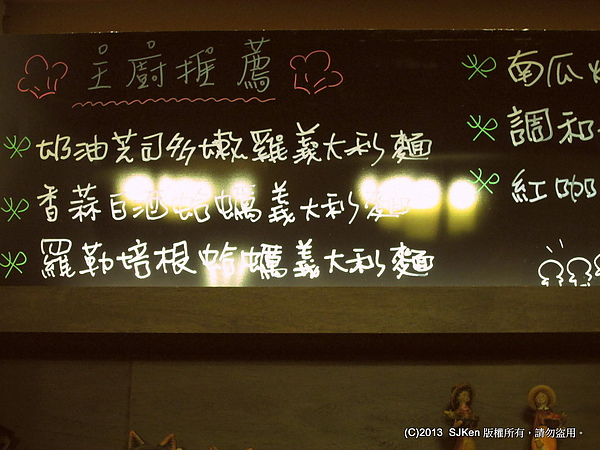 主廚推薦
奶油芝司多嫩雞義大利麵
香蒜白酒蛤蠣義大利麵
羅勒培根蛤蠣義大利麵
南瓜
調和
紅咖
(C)2013 SJKen 版權所有，請勿盜用。